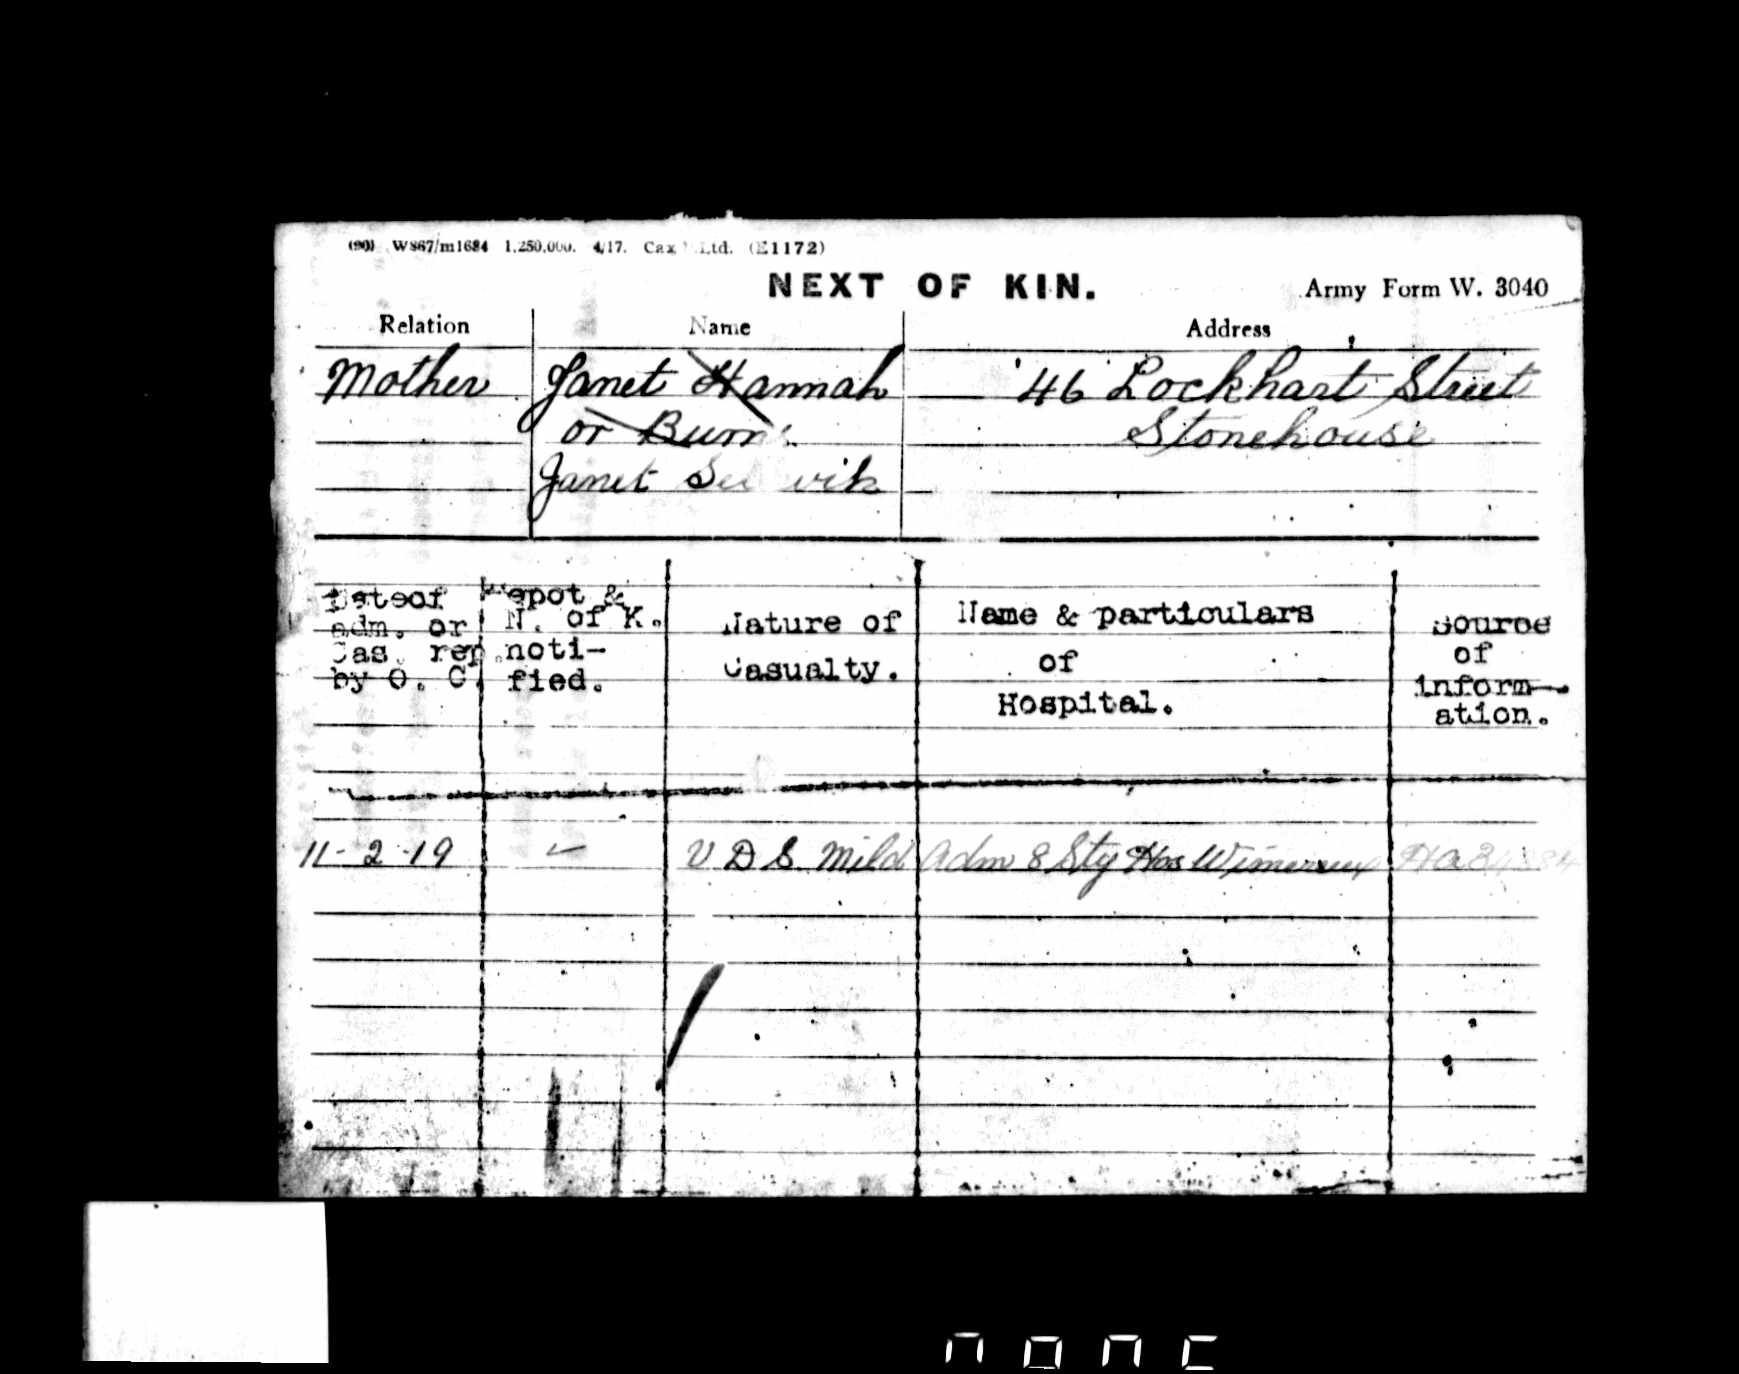 (90) W867/m1684 1,250,000. 4/17. Ltd. (E1172)
NEXT OF KIN.
Army Form W. 3040
Relation Name Address
Mother Janet Hannah 46 Lockhart Street
or Burns Stonehouse
Janet
Date of adm. or Cas. rep. by O. C.
Depot & N. of K. notified.
Nature of Casualty.
Name & particulars of Hospital.
Source of inform-ation.
11-2-19 – V D S. Mild Adm 8 Sty Hos Wimereux